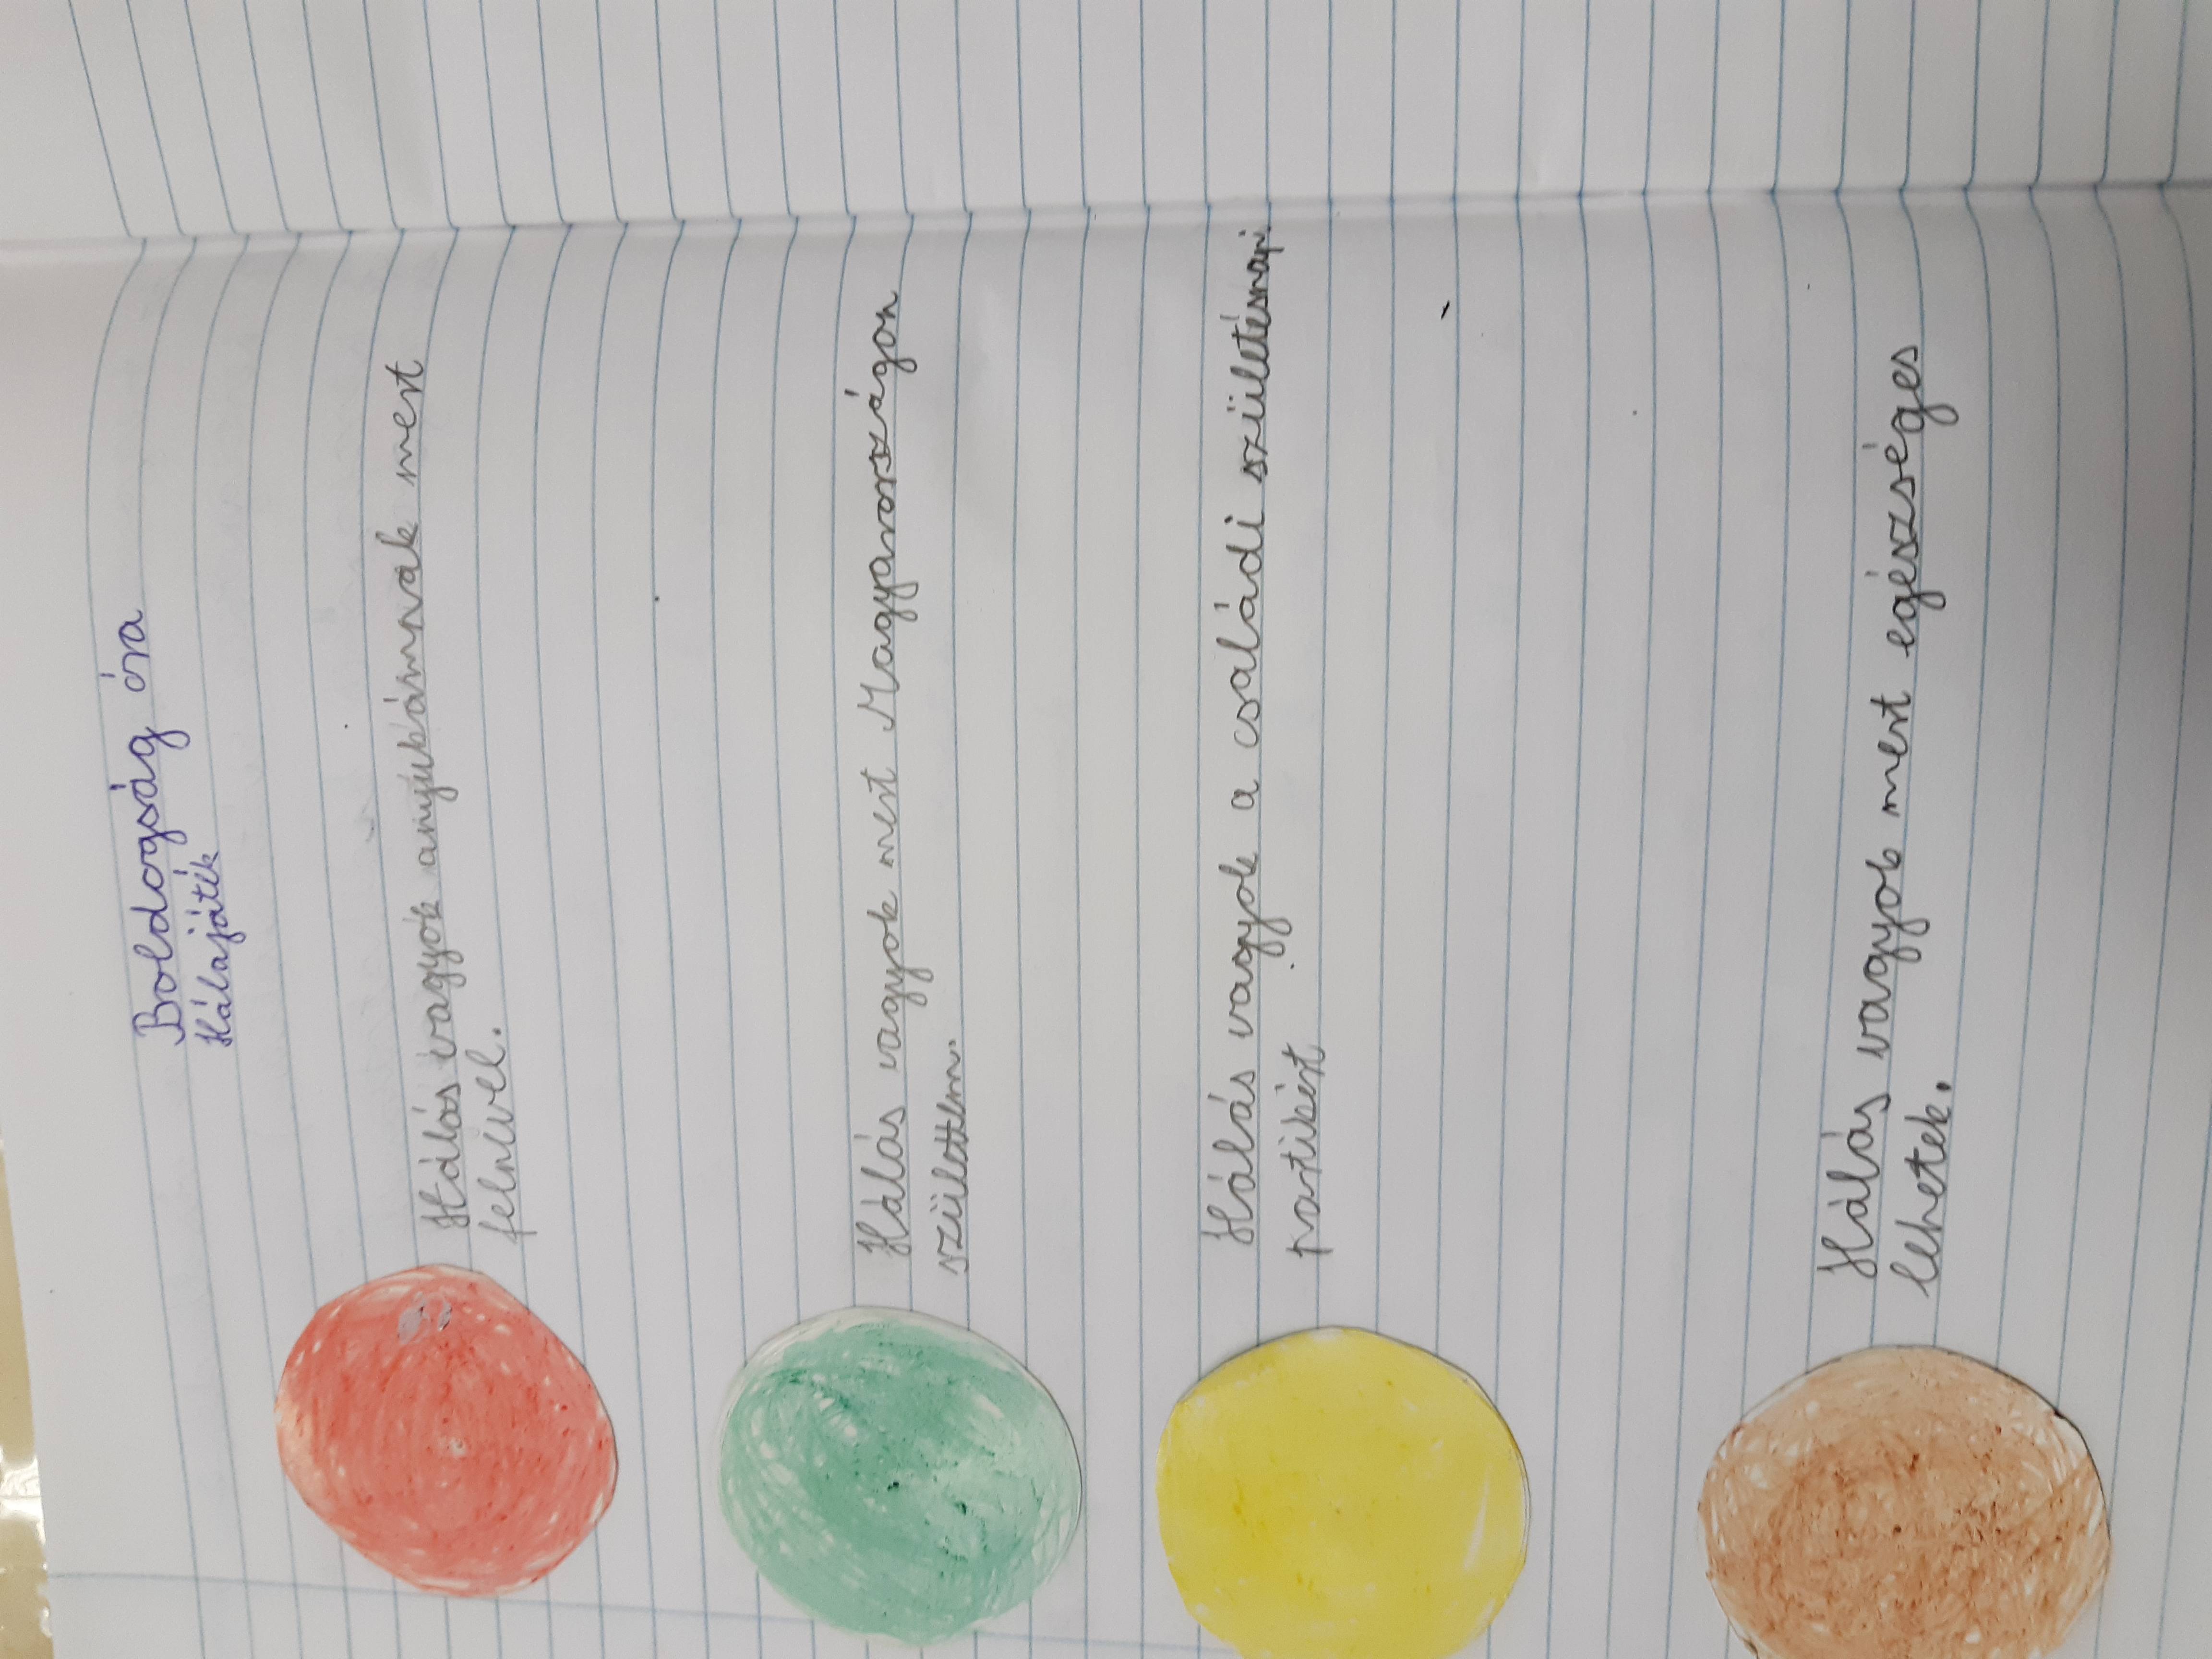 Boldogság óra
Hálajáték
Hálás vagyok anyukámnak mert
felnevel.
Hálás vagyok mert Magyarországon
születtem.
Hálás vagyok a családi születésnapi
partikért
Hálás vagyok mert egészséges
lehetek.